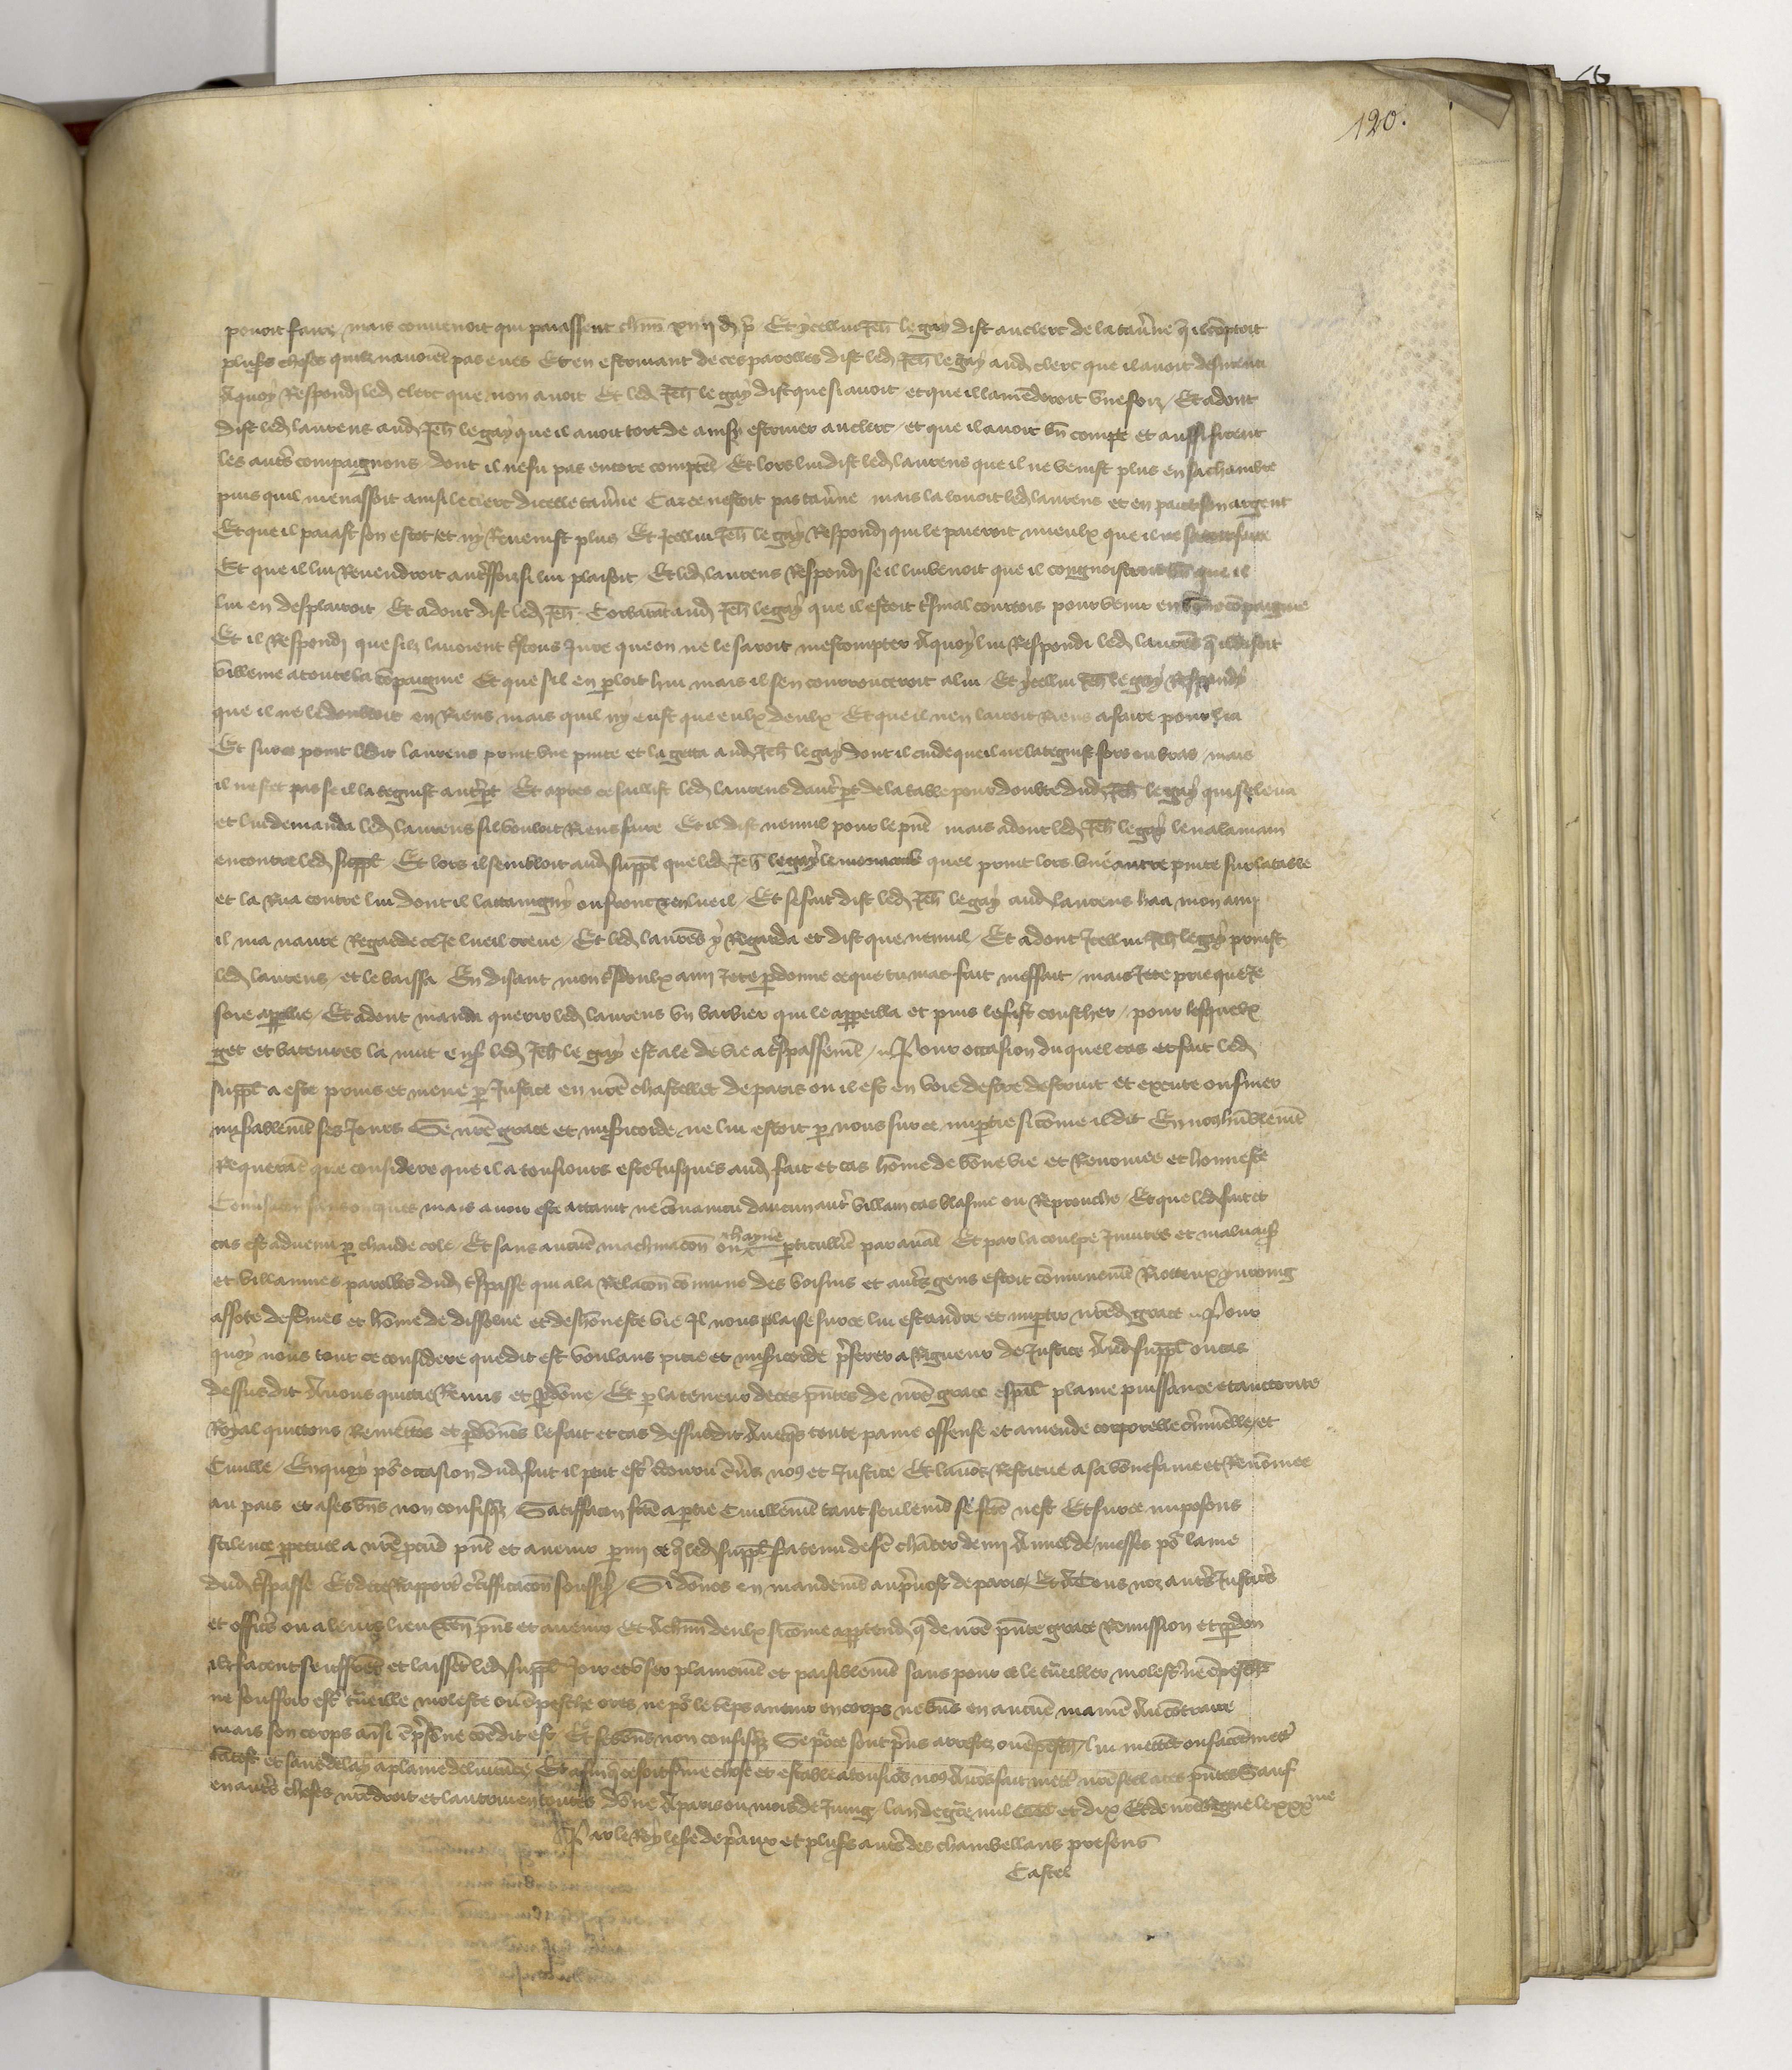 120.
povoit faire mais convenoit qui paiassent chūn xiiii d. p. Et ycellui Jeh̄ le gay dist au clerc de la tav̄ne q̄ il cōptoit
plus̄s choses quilz navoiēt pas eues Et en estrivant de ces parolles dist led. Jeh̄ le gay aud. clerc que il avoit desmenti
A quoy Respondi led. clerc que non avoit Et led. Jeh̄ le gay dist que si avoit et que il lamēderoit une foiz Et adont
dist led. laurens aud. Jeh̄ le gay que il avoit tort de ainsi estriver au clerc et que il avoit bn̄ compté et aussi firent
les aut̄s compaignons dont il ne fu pas encore comptēt Et lors lui dist led. laurens que il ne venist plus en sa chambre
puis quil menassoit ainsi le clerc dicelle tav̄ne Car ce nestoit pas tav̄ne mais la louoit led. laurens et en paioit son argent
Et que il paiast son escot et ny Revenist plus Et Jcellui Jeh̄ le gay Respondi qui le paieroit mieulx que il ne
Et que il lui Revendroit aut̄sfoiz si lui plaisoit Et led. laurens Respondi se il luivenoit que il congnoistroit bn̄ que il
lui en desplairoit Et adont dist led. Jeh̄ aud. Jeh̄ le gay que il estoit t̄smal courtois pour venir en bōne cōpaignie
Et il Respondi que silz lavoient t̄stous Jure que on ne le saroit mescompter A quoy lui Respondi led. laurēs q̄ il disoit
villenie a toute la cōpaignie Et que sil en p̄loit hui mais il sen courrouceroit a lui Et ycellui Jeh̄ le gay Respondy
que il ne le doubtoit en Riens mais quil ny eust que eulx deulx Et que il nen lairoit Riens a faire pour lui
Et sur ce point ledit laurens print une pinte et la getta aud. Jeh̄ le gay dont il cuide que il ne lategnist fors ou bras mais
il ne scet pas se il lategnist aut̄ p̄t Et apres ce sailli led. laurens daut̄ p̄t de la table pour doubte dud. Jeh̄ le gay qui se leva
et lui demanda led. laurens sil vouloit Riens faire Et il dist nennil pour le p̄nt mais adont led. Jeh̄ le gay leva la main
encontre led. suppl̄ Et lors il sembloit aud. suppl̄ que led. Jeh̄ le gay le menacast quel print lors une autre pinte sur la table
et la Rua contre lui dont il lattaingny ou front vers lueil Et ce fait dist led. Jeh̄ le gay aud. laurens haa mon ami
il ma navre Regarde ce Je lueil creve Et led. laurēs y Regarda et dist que nennil Et adont Jcellui Jeh̄ le gay prinst
led. laurens et le baissa En disant mon t̄sdoulx ami Je te p̄donne ce que tu mas fait meffait mais Je te prie que Je
soie app̄llie Et adont manda querir led. laurens un barbier qui le appeilla et puis le fist couschier pour lesquelx
get et bateures la nuit ens̄ led. Jeh̄ le gay est ale de vie a t̄spassemēt Pour occasion du quel cas et fait led.
suppl̄ a este prins et mene p̄ Justice en nr̄e chastellet de paris ou il est en voie destre destruit et execute ou finer
mis̄ablemēt ses Jours Se nr̄e grace et mis̄icorde ne lui estoit p̄ nous sur ce imp̄tie si cōme il dit En nos hūblemēt
Requerāt que considere que il a tousiours este Jusques aud. fait et cas hōme de bōne vie et Renōmee et honneste
Convsacōn sans onques mais avoir este attaint ne cōvaincu daucun aut̄ villain cas blasme ou Reprouche Et que led. fait et
cas est advenu p̄ chaude cole Et sans aucūe machinacōn ou hayne p̄ticuliēre par avāt Et par la coulpe Jnutes et malvais̄
et villaines parolles dud. t̄spasse qui a la Relacōn cōmune des voisins et aut̄s gens estoit cōmunemēt Rioteux yvrong
assote de fēmes et hōme de dissolue et deshōneste vie Jl nous plaise sur ce lui estandre et imp̄tir nr̄ed. grace Pour
quoy nous tout ce considere que dit est voulans pitie et mis̄icorde p̄ferer a Rigueur de Justice Aud. suppl̄ ou cas
dessusdit Avons quicte Remis et p̄dōne Et p̄ la teneur de ces p̄ntes de nr̄e grace esp̄al plaine puissance et auctorite
Royal quictons Remettōs et p̄dōnōs le fait et cas dessusdit Aveq̄s toute paine offense et amende corporelle c̄iminelle et
Civille En quoy p̄ occasion dud. fait il peut est̄ encouru ēv̄s nos et Justice Et lavōs Restitue a sa bōne fame et Renōmee
au pais et a ses biēs non confisq̄z Satiffacōn fc̄te a p̄tie Civillemēt tant seulemēt se fc̄te nest Et sur ce imposons
scilence p̄petuel a nr̄e p̄cur̄ p̄nt et avenir p̄mi ce q̄ led. suppl̄ sera tenu de fē chāter de messes p̄ lame
dud. t̄spasse Et de ce Rapport̄ c̄tifficacōn souffis̄ Si dōnōs en mandemēt au p̄vost de paris Et A tous noz aut̄s Justic̄s
et offic̄s ou a leurs lieuxten̄ p̄ns et avenir Et A chūn deulx si cōme app̄tendr̄ q̄ de nr̄e p̄nte grace Remission et p̄don
ilz facent seuffrēt et laissēt led. suppl̄ Joir et user plainemēt et paisiblemēt sans pour ce le t̄veiller molest̄ ne ēpesch̄
ne souffrir est̄ t̄veille moleste ou ēpesche ores ne p̄ le tēps avenir en corps ne biēs en aucūe maniē Au cōtraire
mais son corps ainsi ēp̄sōne cōe dit est Et ses biēs non confisq̄z Se p̄ ce sont p̄ns arrestez ou ēpesch̄ lui mettēt ou facēt mett̄
tātost et sans delay a plaine delivrāce Et afin q̄ ce soit ferme chose et estable a tousio̅s nos Avōs fait mett̄ nr̄e scel a ces p̄ntes Sauf
en aut̄s choses nr̄e droit et lautrui en toutes Dōne A paris ou mois de Juing lan de gr̄ce mil cccc et dix Et de nr̄e Regne le xxxme
Par le Roy le sr de p̄aux et plus̄s aut̄s des chambellans presens
Castel